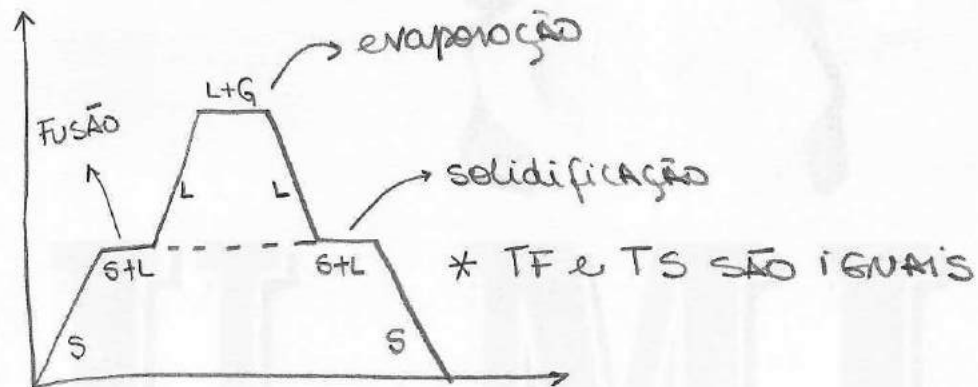 evaporação
L+G
FUSÃO
L
L
solidificação
S+L
S+L
* TF e TS SÃO iGUAIS
S
S